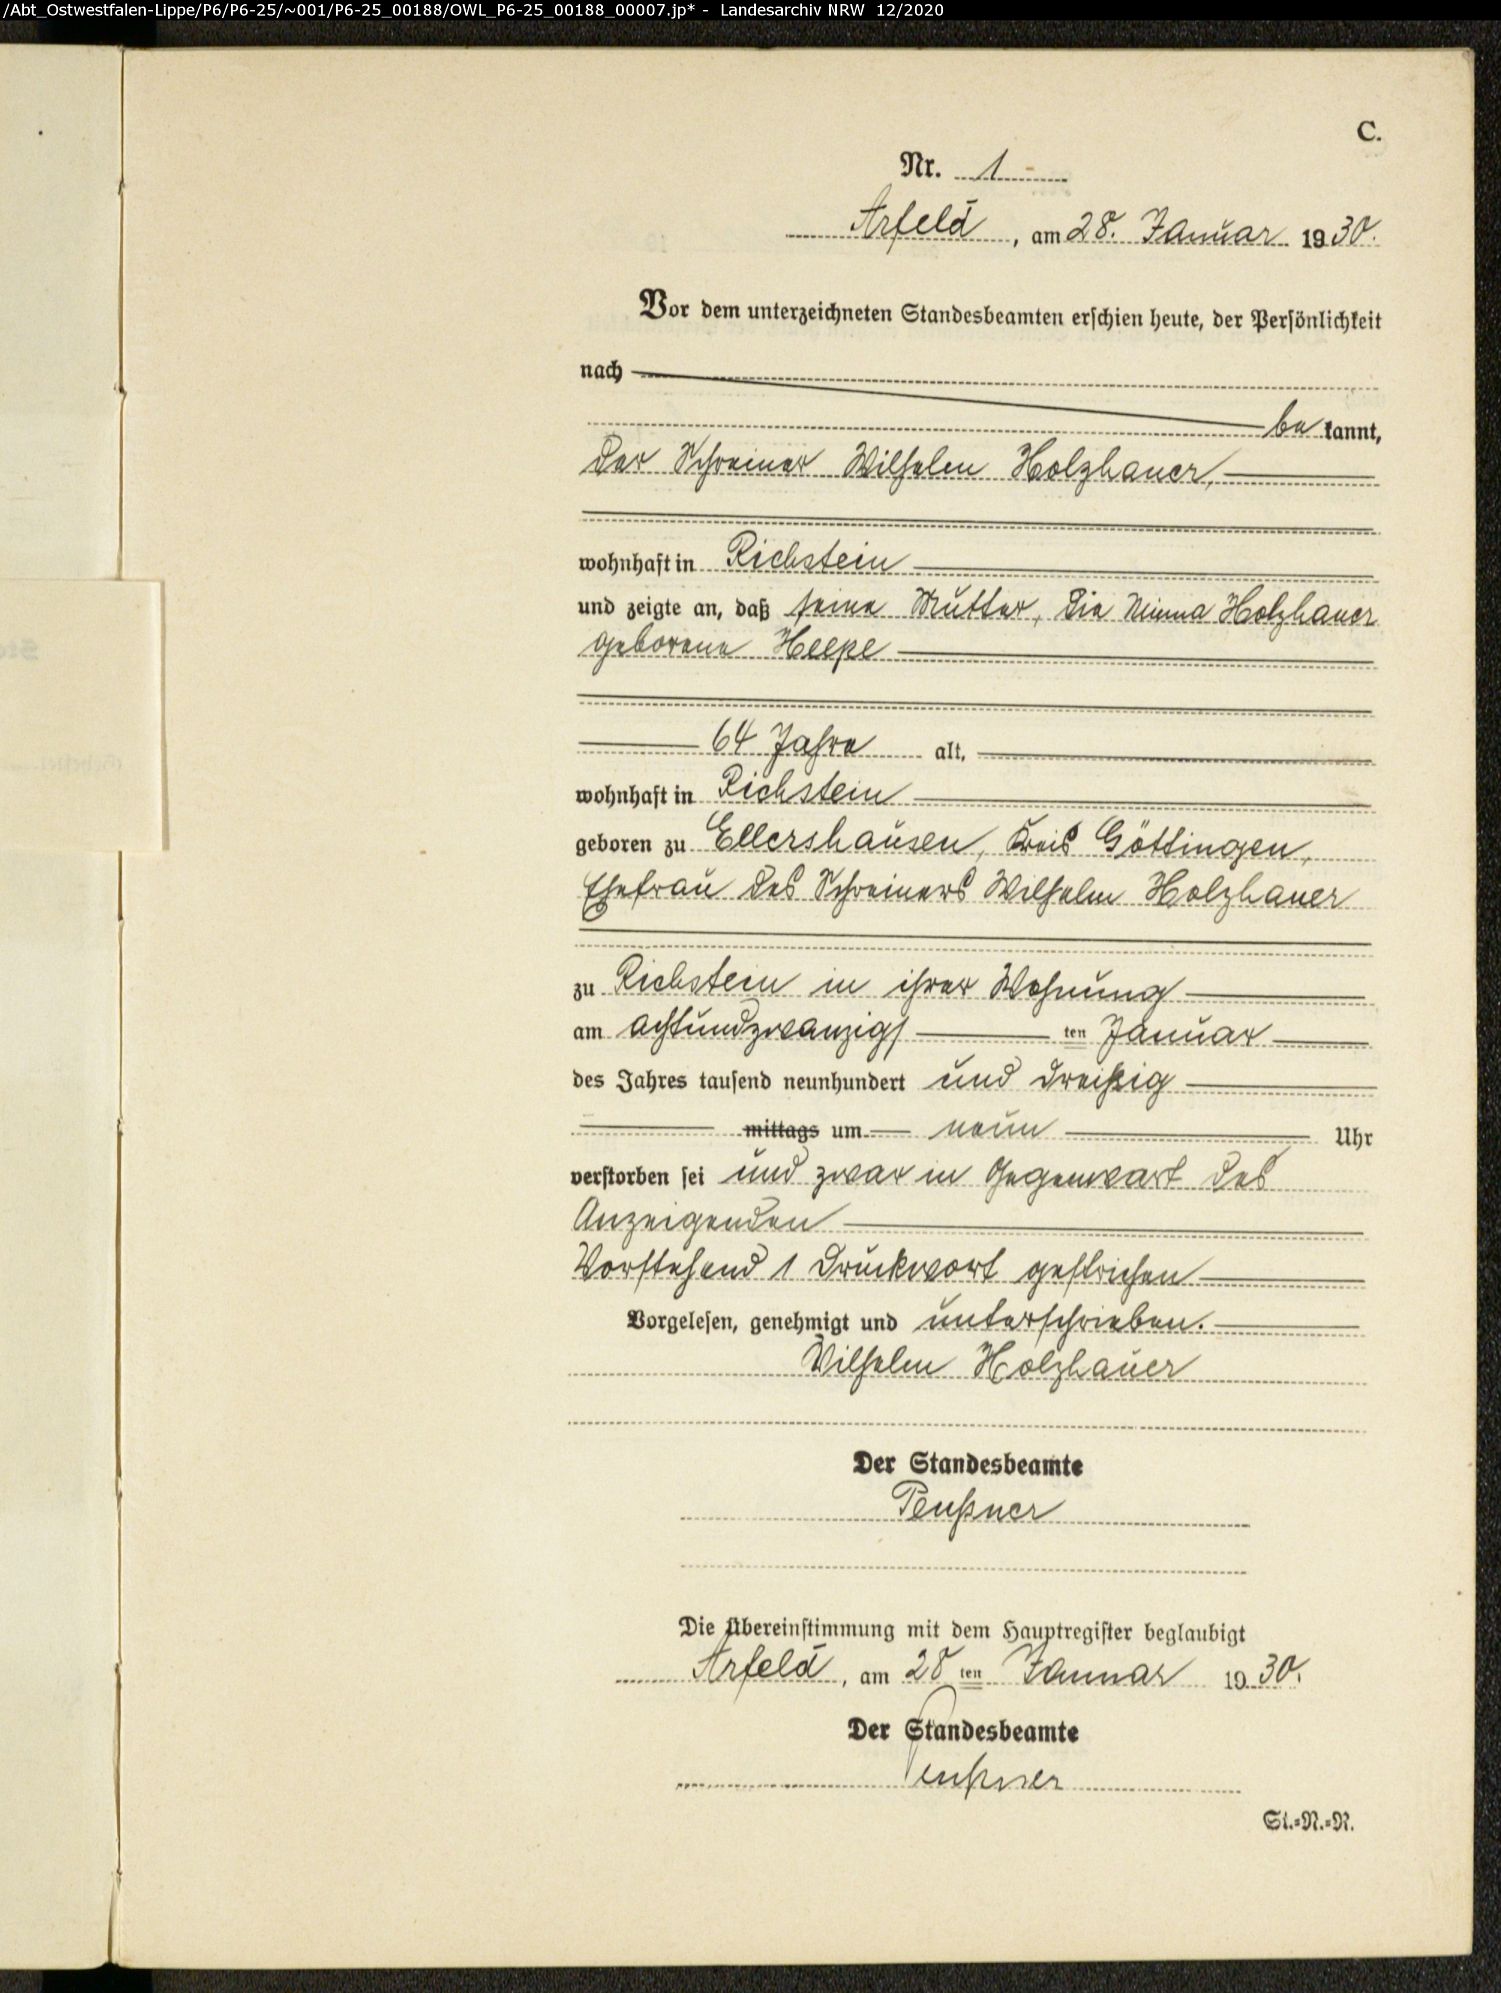 /Abt_Ostwestfalen-Lippe/P6/P6-25/~001/P6-25_00188/OWL_P6-25_00188_00007.jp* - Landesarchiv NRW 12/2020
C.
Nr. 1
Arfeld, am 28. Januar 1930.
Vor dem unterzeichneten Standesbeamten erschien heute, der Persönlichkeit
nach
be kannt,
der Schreiner Wilhelm Holzhauer,
wohnhaft in Richstein
und zeigte an, daß seine Mutter, die Minna Holzhauer
geborene Heepe
64 Jahre alt,
wohnhaft in Richstein
geboren zu Ellershausen, Kreis Göttingen,
Ehefrau des Schreiners Wilhelm Holzhauer
zu Richstein in ihrer Wohnung
am achtundzwanzigs ten Januar
des Jahres tausend neunhundert und dreißig
mittags um neun Uhr
verstorben sei und zwar in Gegenwart des
Anzeigenden
Vorstehend 1 Druckwort gestrichen
Vorgelesen, genehmigt und unterschrieben.
Wilhelm Holzhauer
Der Standesbeamte
Peußner
Die Übereinstimmung mit dem Hauptregister beglaubigt
Arfeld, am 28 ten Januar 1930.
Der Standesbeamte
Peußner
St.=N.=R.